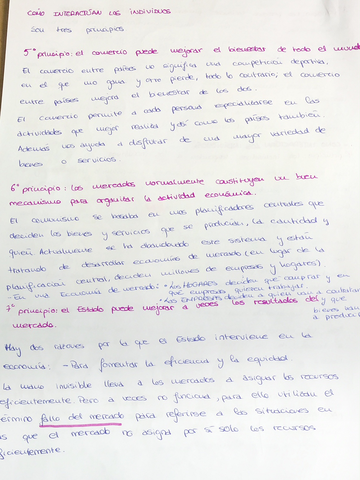 CÓMO INTERACTÚAN LOS INDIVIDUOS
Son tres principios
5º principio: el comercio puede mejorar el bienestar de todo el mundo
El comercio entre países no significa una competición deportiva,
en el que uno gana y otro pierde, todo lo contrario, el comercio
entre países mejora el bienestar de los dos.
El comercio permite a cada persona especializarse en las
actividades que mejor realiza y así como los países también.
Además nos ayuda a disfrutar de una mayor variedad de
bienes o servicios.
6º principio: los mercados normalmente constituyen un buen
mecanismo para organizar la actividad económica.
El comunismo se basaba en unos planificadores centrales que
deciden los bienes y servicios que se producían, la cantidad y
quién. Actualmente se ha abandonado este sistema y están
tratando de desarrollar economías de mercado (en lugar de la
planificación central, deciden millones de empresas y hogares)
- En una Economía de mercado: * Los HOGARES deciden que comprar y en
que empresas quieren trabajar.
* Las EMPRESAS deciden a quien van a contratar
y que
7º principio: el Estado puede mejorar a veces los resultados del
mercado.
a producir
Hay dos claves por la que el Estado interviene en la
economía: - Para fomentar la eficiencia y la equidad
La mano invisible lleva a los mercados a asignar los recursos
eficientemente. Pero a veces no funciona, para ello utilizan el
término fallo del mercado para referirse a las situaciones en
las que el mercado no asigna por si solo los recursos
eficientemente.